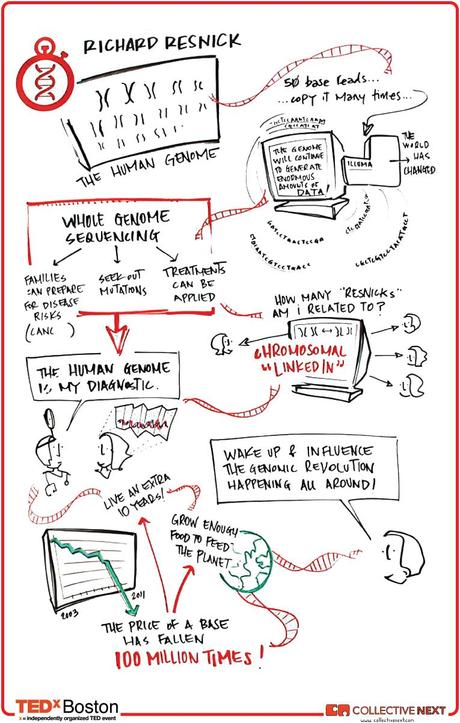 RICHARD RESNICK
THE HUMAN GENOME
50 base reads...
...copy it many times...
THE GENOME
WILL CONTINUE
TO GENERATE
ENORMOUS
AMOUNTS OF
DATA!
THE
WORLD
HAS
CHANGED
WHOLE GENOME
SEQUENCING
FAMILIES
CAN PREPARE
FOR DISEASE
RISKS
SEEK OUT
MUTATIONS
TREATMENTS
CAN BE
APPLIED
HOW MANY "RESNICKS"
AM I RELATED TO?
CHROMOSOMAL
"LINKEDIN"
THE HUMAN GENOME
IS MY DIAGNOSTIC.
WAKE UP & INFLUENCE
THE GENOMIC REVOLUTION
HAPPENING ALL AROUND!
LIVE AN EXTRA
10 YEARS!
GROW ENOUGH
FOOD TO FEED
THE PLANET
2003
2011
THE PRICE OF A BASE
HAS FALLEN
100 MILLION TIMES!
TEDxBoston
x = independently organized TED event
COLLECTIVE NEXT
www.collectivenext.com